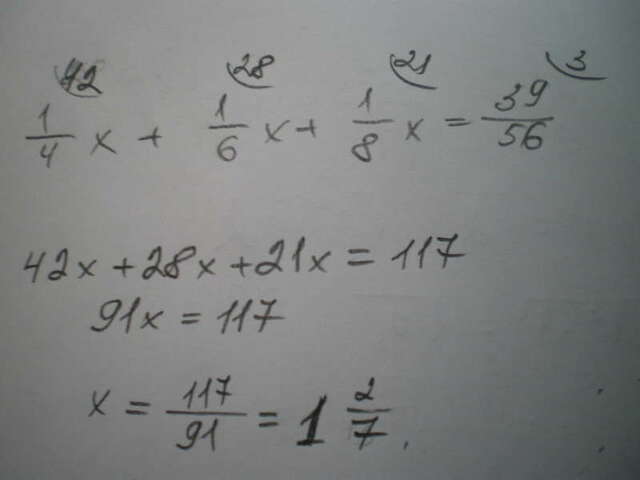 42 28 21 3
1/4 x + 1/6 x + 1/8 x = 39/56
42x + 28x + 21x = 117
91x = 117
x = 117/91 = 1 2/7.